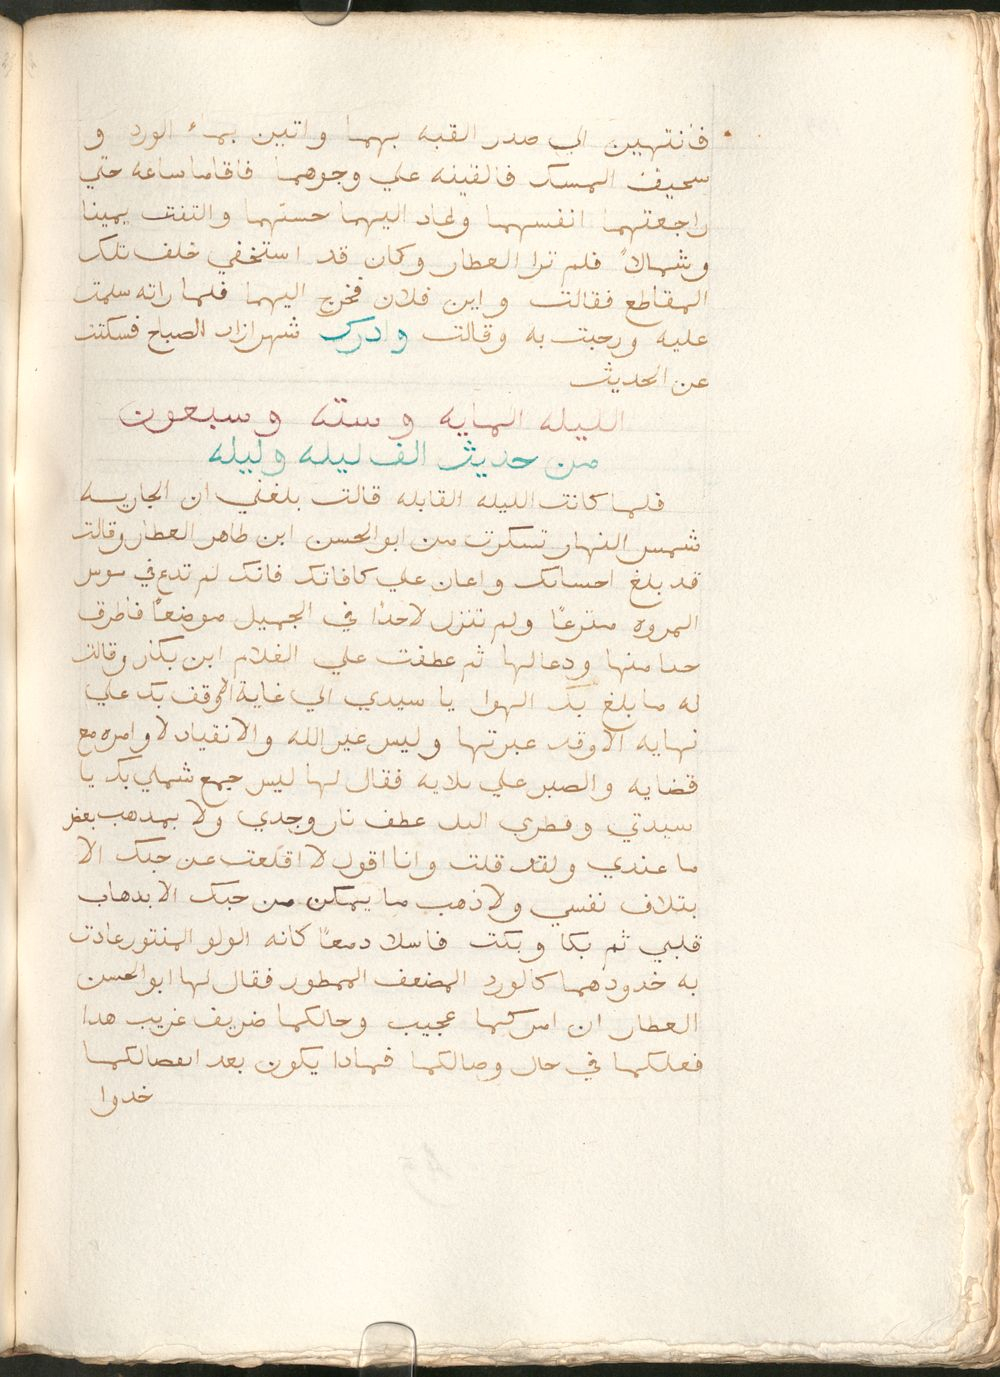 فانتهين الي صدر القبه بهما واتين بماء الورد و
سحيق المسك فالقينه علي وجوههما فاقاما ساعه حتي
راجعتهما انفسهما وعاد اليهما حستهما والتفتت يمينا
وشمالاً فلم ترا العطار وكان قد استخفي خلف تلك
المقاطع فقالت واين فلان فخرج اليهما فلما راته سلمت
عليه ورحبت به وقالت وادرك شهرازاد الصباح فسكتت
عن الحديث
الليله المايه وسته وسبعون
من حديث الف ليله وليله
فلما كانت الليله القابله قالت بلغني ان الجاريه
شمس النهار تسكرت من ابو الحسن ابن طاهر العطار وقالت
قد بلغ احسانك واعان علي كافاتك فانك لم تدع في سوس
المروه مترعًا ولم تنزل لاحدًا في الجميل موضعًا فاطرق
حيا منها ودعا لها ثم عطفت علي الغلام ابن بكار وقالت
له ما بلغ بك الهوا يا سيدي الي غاية الا وقف بك علي
نهايه الا وقد عبرتها وليس غير الله والانقياد لاوامره مع
قضايه والصبر علي بلايه فقال لها ليس جمع شملي بك يا
سيدتي ونظري اليك عطف نار وجدي ولا بمذهب بعض
ما عندي ولقد قلت وانا اقول لا اقلعت عن حبك الا
بتلاف نفسي ولا ذهب ما يمكن من حبك الا بدهاب
قلبي ثم بكا وبكت فاسلا دمعًا كانه الولو المنتور عادت
به خدودهما كالورد المضعف الممطور فقال لها ابو الحسن
العطار ان امركما عجيب وحالكما ضريف غريب هدا
فعلكما في حال وصالكما فمادا يكون بعد انفصالكما
خدوا